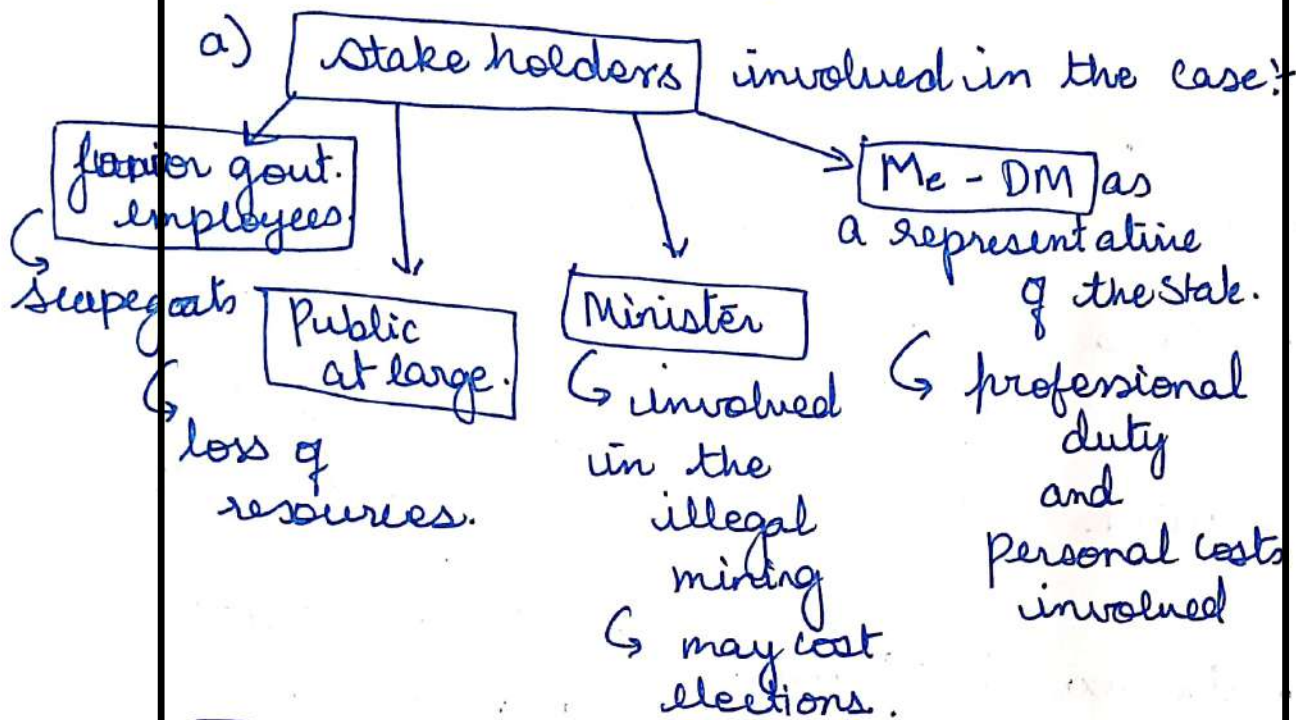 a) Stake holders involved in the case:-
Junior govt.
employees.
scapegoats
Public
at large.
loss of
resources.
Minister
involved
in the
illegal
mining
may cost
elections.
Me - DM as
a representative
of the state.
professional
duty
and
personal costs
involved